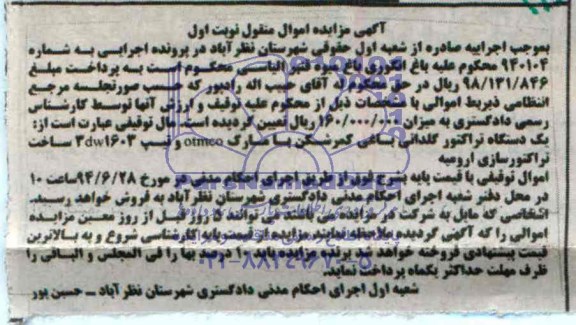 آگهی مزایده اموال منقول نوبت اول
بموجب اجراییه صادره از شعبه اول حقوقی شهرستان نظرآباد در پرونده اجرایی به شماره
۹۴۰۱۰۴ محکوم علیه باغ انگوری باغ میوه قنبر الیاسی محکوم است به پرداخت مبلغ
۹۸/۱۳۱/۸۴۶ ریال در حق محکوم له آقای حبیب اله رادپور که حسب صورتجلسه مرجع
انتظامی ذیربط اموالی با مشخصات ذیل از محکوم علیه توقیف و ارزش آنها توسط کارشناس
رسمی دادگستری به میزان ۱۶۰/۰۰۰/۰۰۰ ریال تعیین گردیده است مال توقیفی عبارت است از:
یک دستگاه تراکتور گلدانی باغی کمرشکن با مارک otmco و تیپ ۳dw۱۶۰۳ ساخت
تراکتورسازی ارومیه
اموال توقیفی با قیمت پایه بشرح فوق از طریق اجرای احکام مدنی در مورخ ۹۴/۶/۲۸ ساعت ۱۰
در محل دفتر شعبه اجرای احکام مدنی دادگستری شهرستان نظرآباد به فروش خواهد رسید.
اشخاصی که مایل به شرکت در مزایده می باشند می توانند قبل از روز معین مزایده
اموالی را که آگهی گردیده ملاحظه نمایند مزایده از قیمت پایه کارشناسی شروع و به بالاترین
قیمت پیشنهادی فروخته خواهد شد برنده مزایده باید ۱۰ درصد بها را فی المجلس و الباقی را
ظرف مهلت حداکثر یکماه پرداخت نماید.
شعبه اول اجرای احکام مدنی دادگستری شهرستان نظرآباد ــ حسین پور
۰۲۱-۸۸۳۴۹۶۷۰-۵